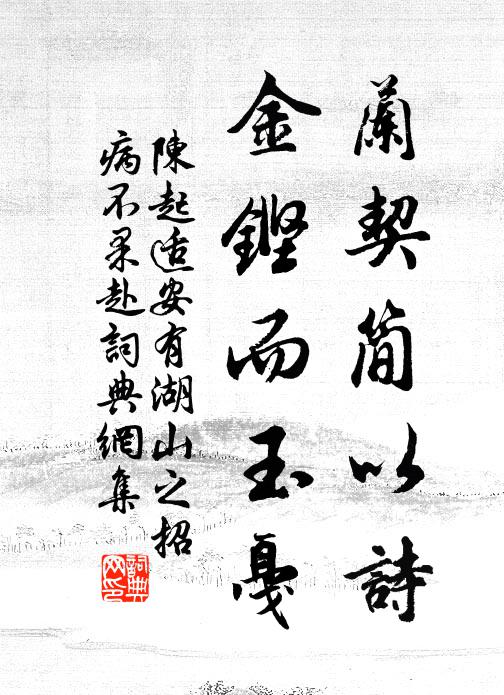 蘭契簡以詩
金鏗而玉戛
陳起適安有湖山之招
病不果赴詞典網集
詞典網印